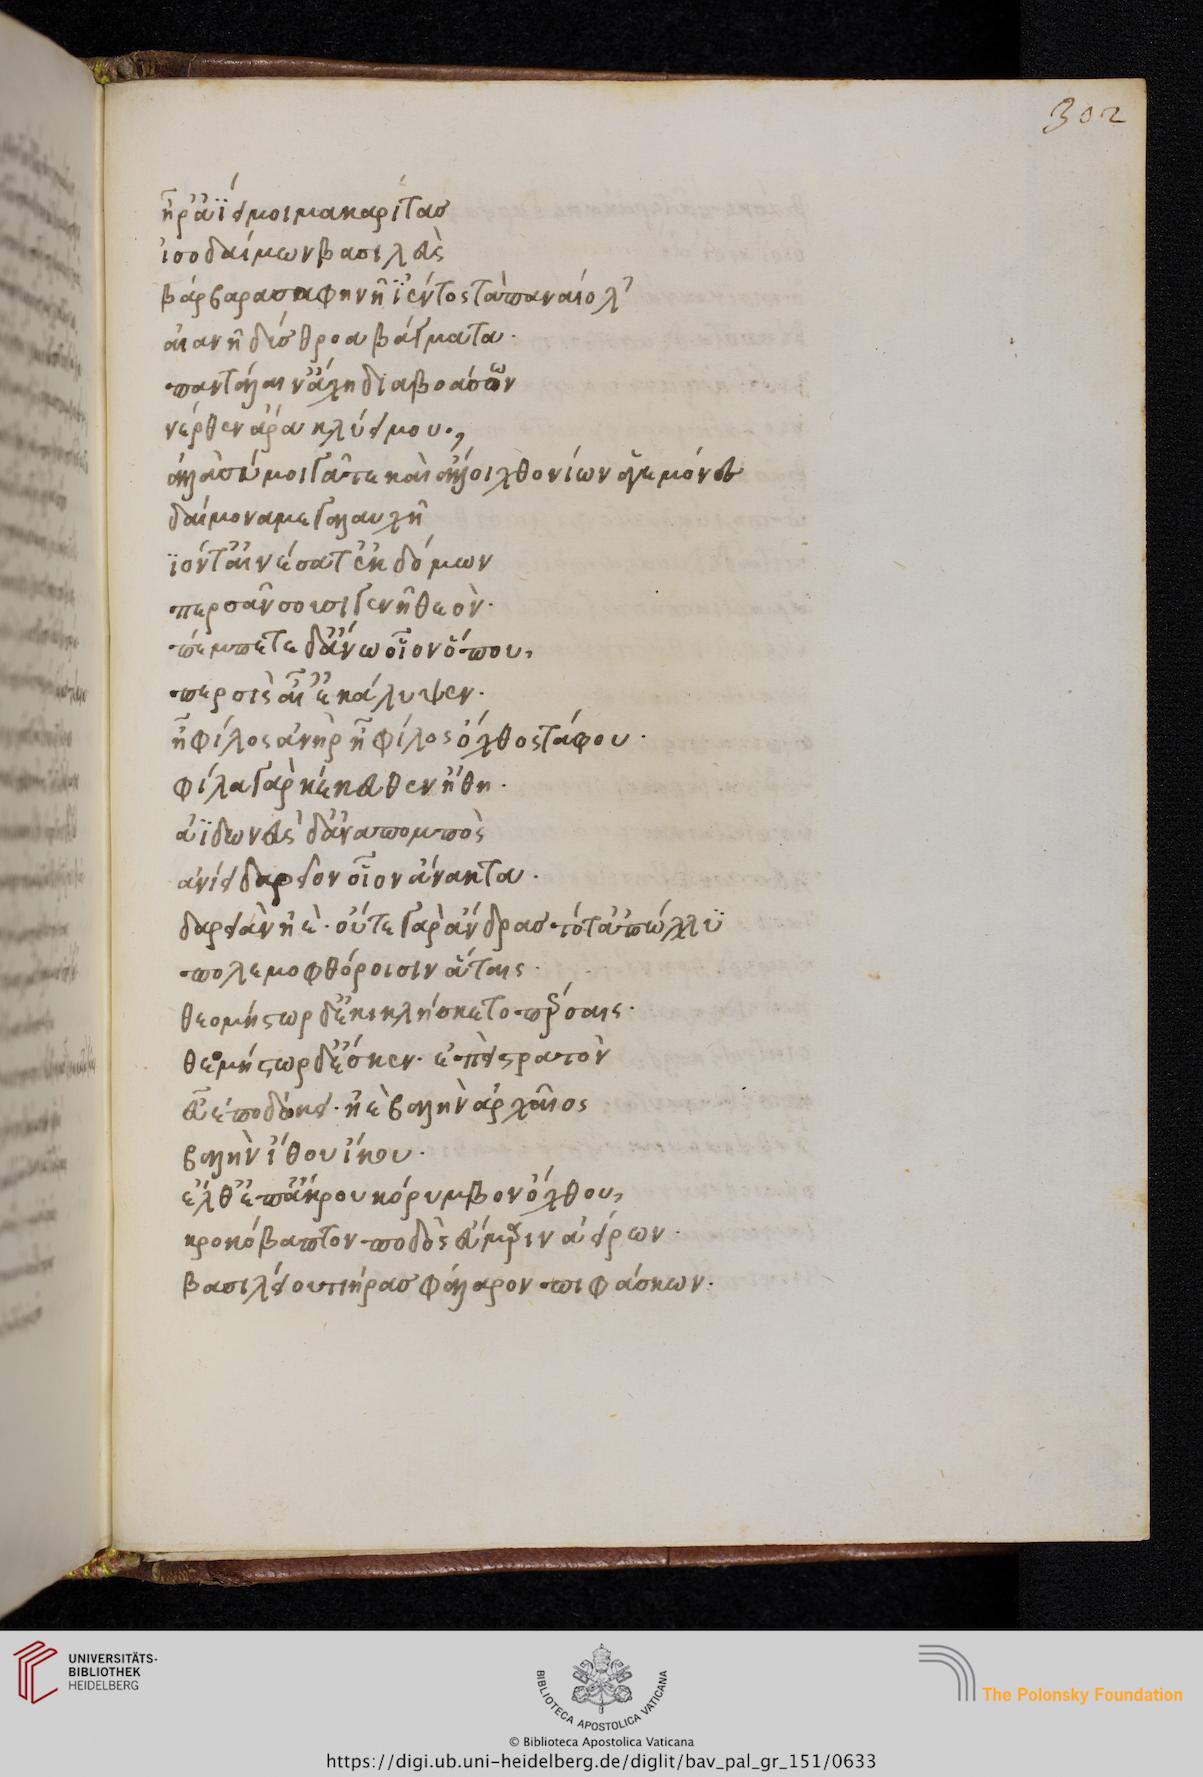 302
ἦ ῥ' ἀΐει μοι μακαρίτας
ἰσοδαίμων βασιλεὺς
βάρβαρα σαφηνῆ ἱέντος τὰ παναίολ'
αἰανῆ δύσθροα βάγματα.
παντάλαιν' ἄχη διαβοάσω
νέρθεν ἆρα κλύει μου.,
ἀλλὰ σύ μοι γᾶ τε καὶ ἄλλοι χθονίων ἁγεμόνες
δαίμονα μεγαλαυχῆ
ἰόντ' αἰνέσατ' ἐκ δόμων
περσᾶν σουσιγενῆ θεὸν.
πέμπετε δ' ἄνω οἷον οὔπου,
περσὶς αἶ' ἐκάλυψεν.
ἦ φίλος ἀνὴρ ἦ φίλος ὄχθος τάφου.
φίλα γὰρ κέκευθεν ἤθη.
ἀϊδωνεὺς δ' ἀναπομπὸς
ἀνίει δαρεῖον οἷον ἄνακτα.
δαρειὰν ἠὲ. οὔτε γὰρ ἄνδρας πότ' ἀπώλλυ
πολεμοφθόροισιν ἄταις.
θεομήστωρ δ' ἐκικλήσκετο πέρσαις.
θεομήστωρ δ' ἔσκεν. ἐπεὶ στρατὸν
εὖ ἐποδώκει. ἠὲ βαλὴν ἀρχαῖος
βαλὴν ἴθου ἵκου.
ἐλθ' ἐπ' ἄκρον κόρυμβον ὄχθου,
κροκόβαπτον ποδὸς εὔμαριν ἀείρων.
βασιλείου τιήρας φάλαρον πιφάσκων.
UNIVERSITÄTS-
BIBLIOTHEK
HEIDELBERG
BIBLIOTECA APOSTOLICA VATICANA
The Polonsky Foundation
© Biblioteca Apostolica Vaticana
https://digi.ub.uni-heidelberg.de/diglit/bav_pal_gr_151/0633